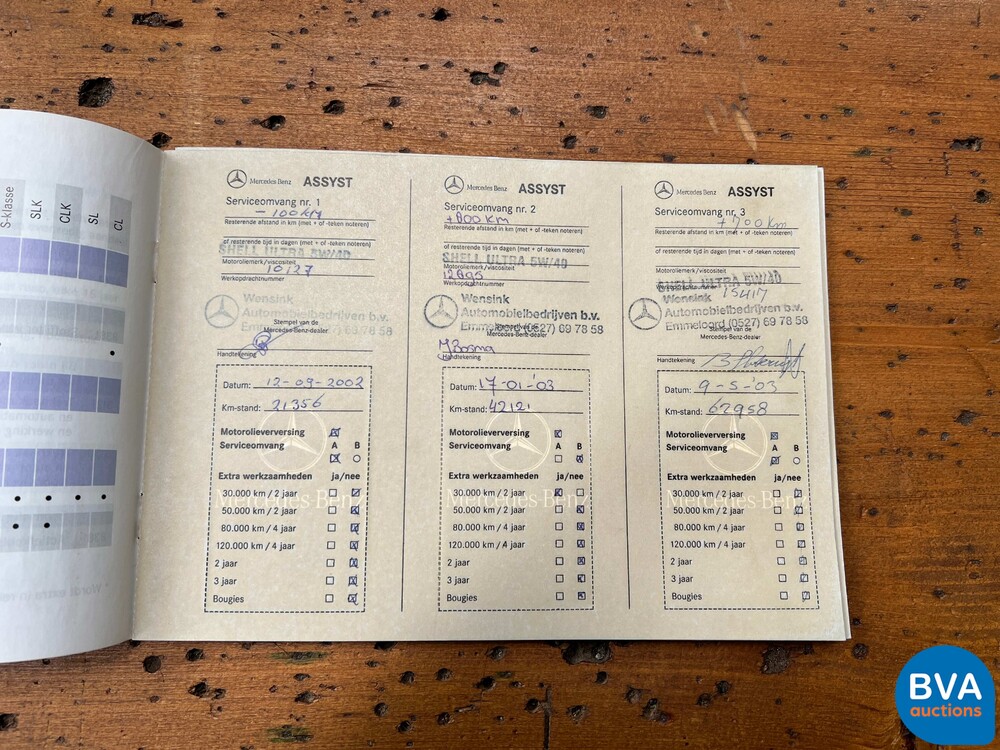 S-klasse
SLK
CLK
SL
CL
Mercedes Benz ASSYST
Serviceomvang nr. 1
- 100 km
Resterende afstand in km (met + of -teken noteren)
of resterende tijd in dagen (met + of -teken noteren)
SHELL ULTRA 5W/40
Motoroliemerk/viscositeit
10127
Werkopdrachtnummer
Wensink
Automobielbedrijven b.v.
Emmeloord (0527) 69 78 58
Stempel van de
Mercedes-Benz-dealer
Handtekening
Datum: 12-09-2002
Km-stand: 21356
Motorolieverversing
Serviceomvang A B
Extra werkzaamheden ja/nee
30.000 km / 2 jaar
50.000 km / 2 jaar
80.000 km / 4 jaar
120.000 km / 4 jaar
2 jaar
3 jaar
Bougies
Mercedes-Benz
Mercedes Benz ASSYST
Serviceomvang nr. 2
+800 km
Resterende afstand in km (met + of -teken noteren)
of resterende tijd in dagen (met + of -teken noteren)
SHELL ULTRA 5W/40
Motoroliemerk/viscositeit
12895
Werkopdrachtnummer
Wensink
Automobielbedrijven b.v.
Emmeloord (0527) 69 78 58
Mercedes-Benz-dealer
Bosma
Handtekening
Datum: 17-01-'03
Km-stand: 42121
Motorolieverversing
Serviceomvang A B
Extra werkzaamheden ja/nee
30.000 km / 2 jaar
50.000 km / 2 jaar
80.000 km / 4 jaar
120.000 km / 4 jaar
2 jaar
3 jaar
Bougies
Mercedes-Benz
Mercedes Benz ASSYST
Serviceomvang nr. 3
+700 km
Resterende afstand in km (met + of -teken noteren)
of resterende tijd in dagen (met + of -teken noteren)
Motoroliemerk/viscositeit
SHELL ULTRA 5W/40
Werkopdrachtnummer
15417
Wensink
Automobielbedrijven b.v.
Emmeloord (0527) 69 78 58
Stempel van de
Mercedes-Benz-dealer
Handtekening
Datum: 9-5-'03
Km-stand: 62958
Motorolieverversing
Serviceomvang A B
Extra werkzaamheden ja/nee
30.000 km / 2 jaar
50.000 km / 2 jaar
80.000 km / 4 jaar
120.000 km / 4 jaar
2 jaar
3 jaar
Bougies
Mercedes-Benz
BVA
auctions